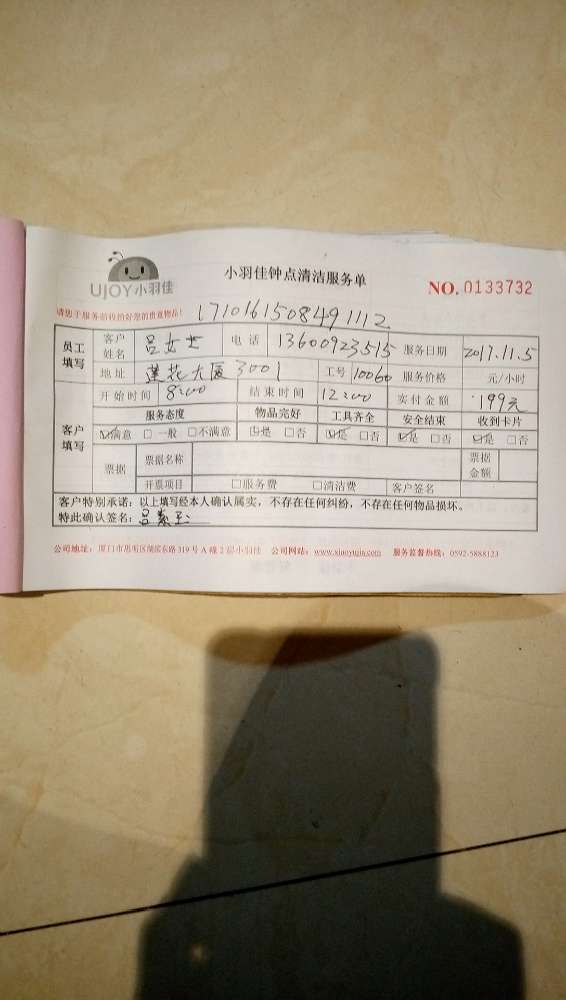 UJOY小羽佳
小羽佳钟点清洁服务单
NO. 0133732
请您于服务前转拍好您的贵重物品!
1710161508491112
员工填写 客户姓名 吕女士 电话 13600923515 服务日期 2017.11.5
地址 莲花大厦3001 工号 10060 服务价格 元/小时
客户填写 开始时间 8:00 结束时间 12:00 实付金额 199元
服务态度 物品完好 工具齐全 安全结束 收到卡片
☑满意 □一般 □不满意 ☑是 □否 ☑是 □否 ☑是 □否 ☑是 □否
票据 票据名称 票据金额
开票项目 □服务费 □清洁费 客户签名
客户特别承诺:以上填写经本人确认属实,不存在任何纠纷,不存在任何物品损坏。
特此确认签名:吕
公司地址:厦门市思明区湖滨东路319号A幢2层小羽佳 公司网站:www.xiaoyujia.com 服务监督热线:0592-5888123